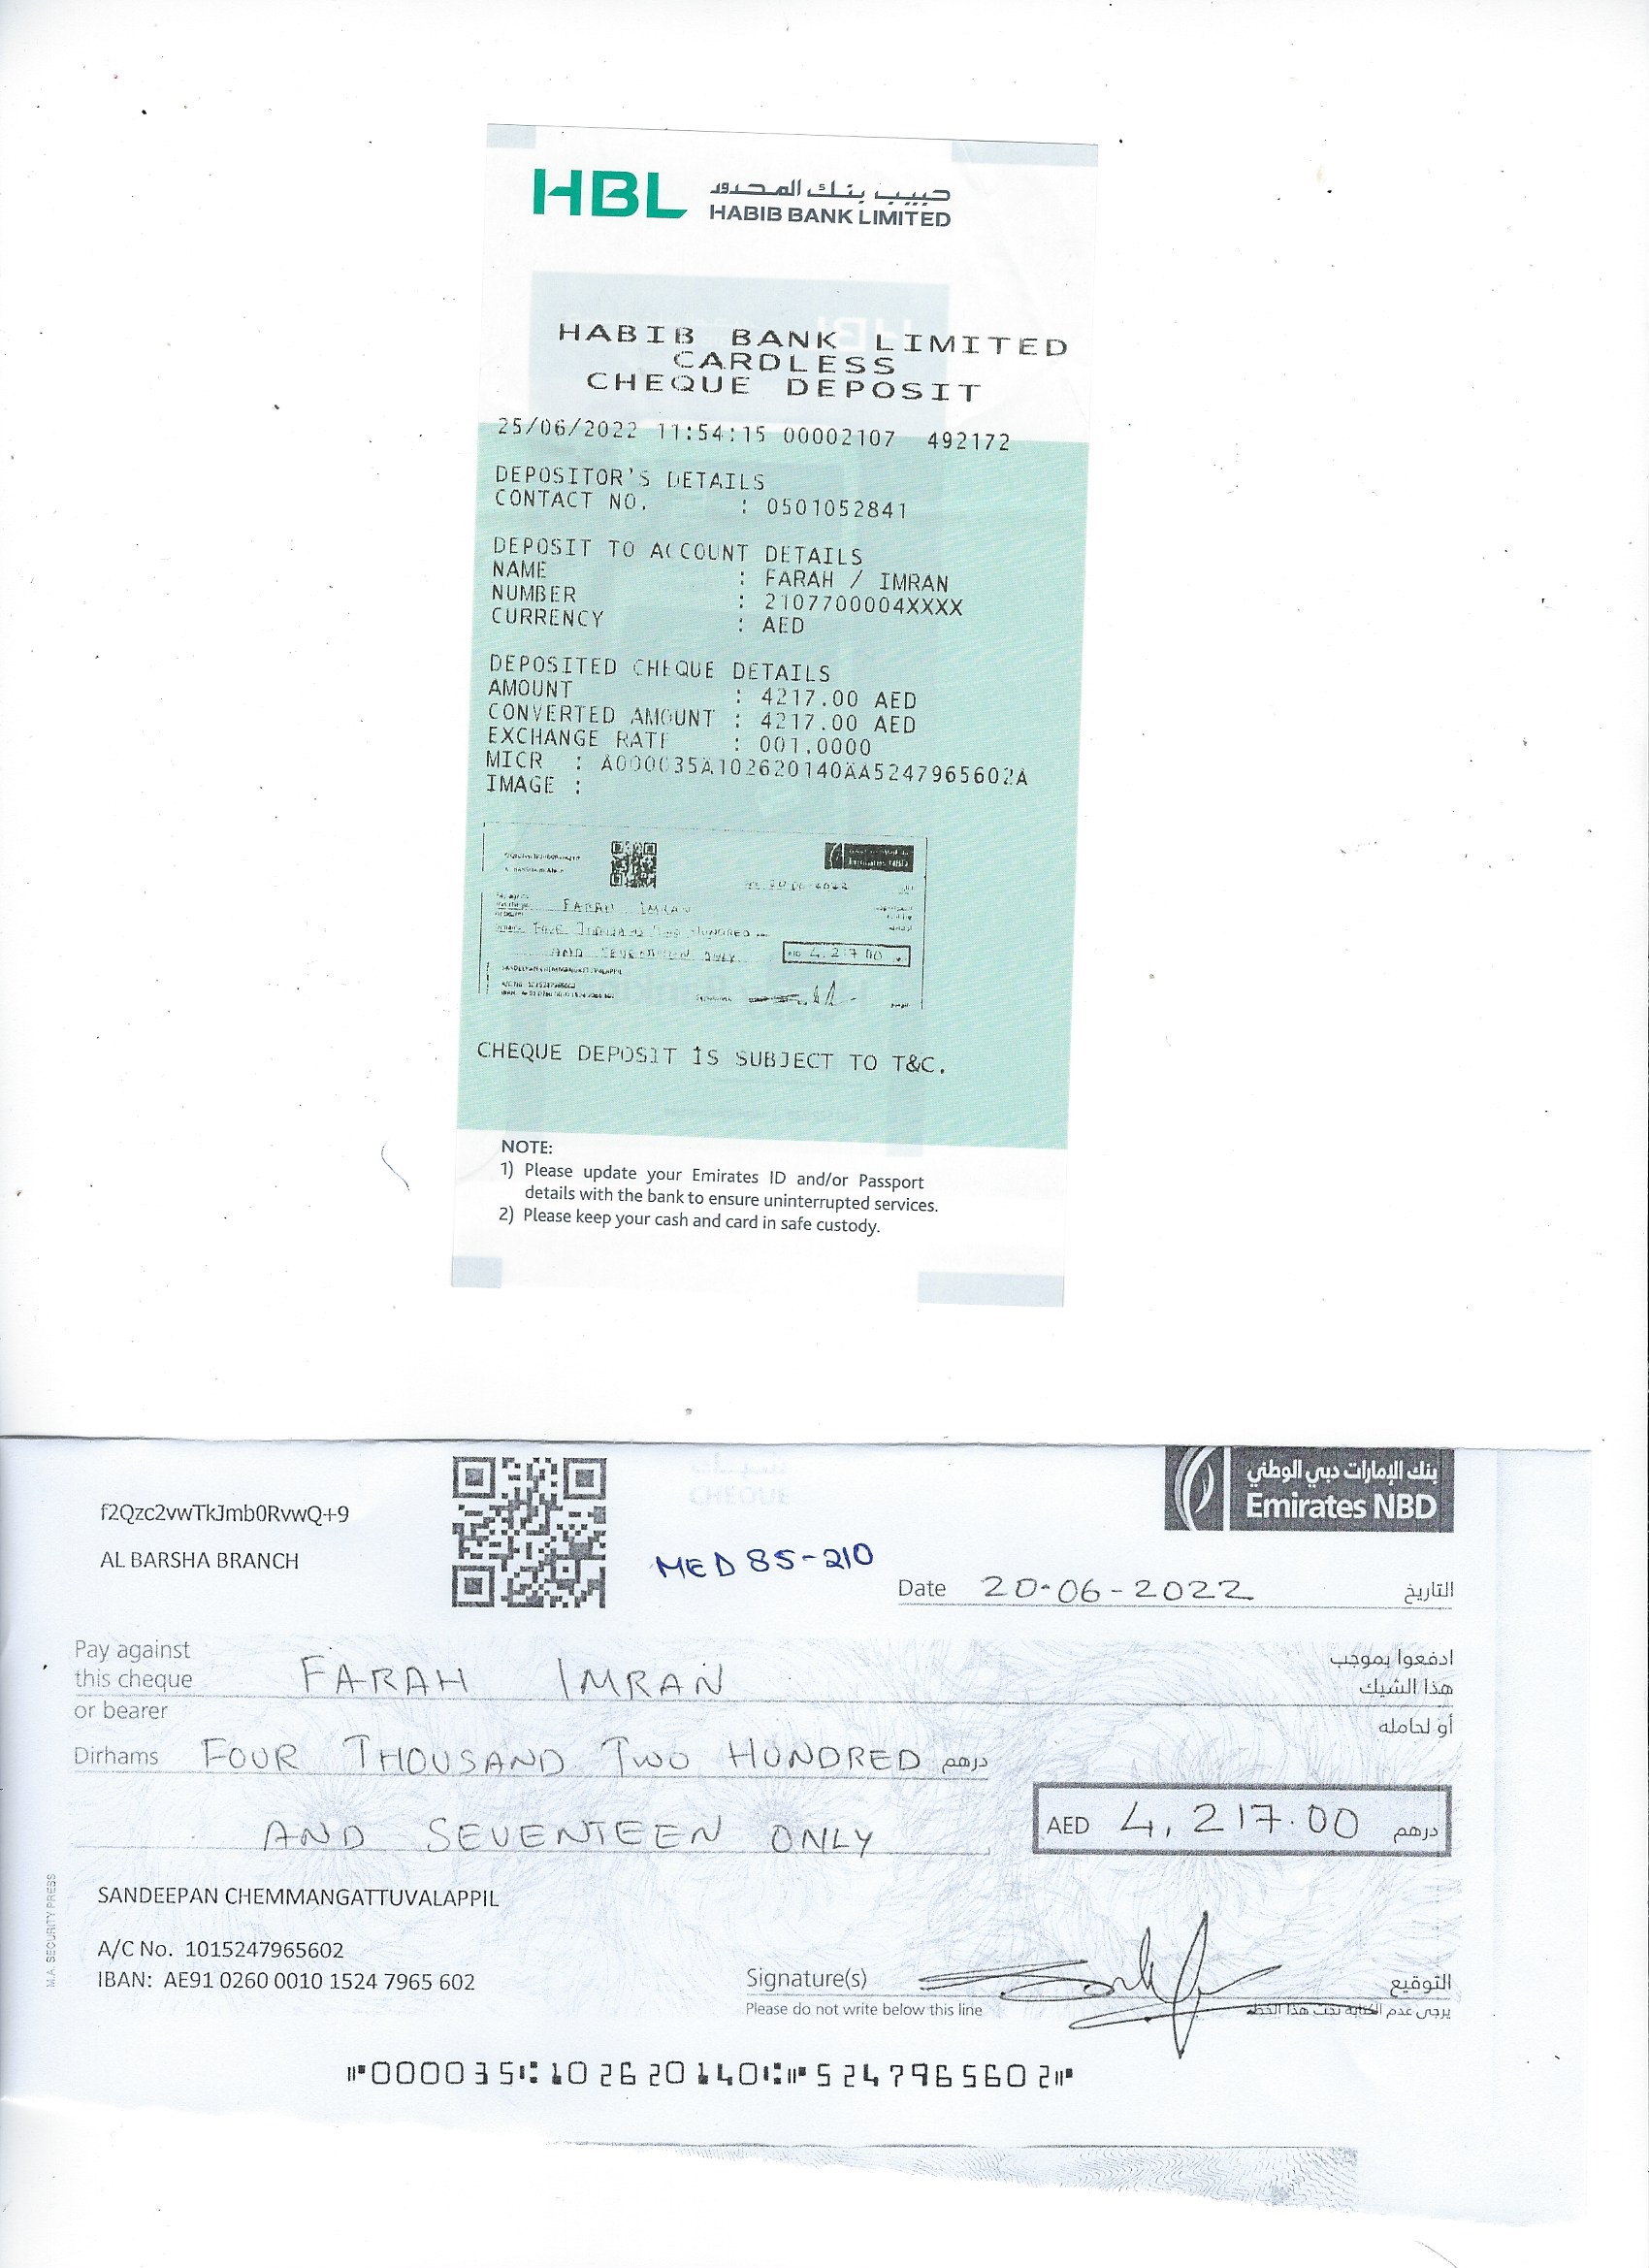 HBL حبيب بنك المحدود
HABIB BANK LIMITED
HABIB BANK LIMITED
CARDLESS
CHEQUE DEPOSIT
25/06/2022 11:54:15 00002107 492172
DEPOSITOR'S DETAILS
CONTACT NO. : 0501052841
DEPOSIT TO ACCOUNT DETAILS
NAME : FARAH / IMRAN
NUMBER : 2107700004XXXX
CURRENCY : AED
DEPOSITED CHEQUE DETAILS
AMOUNT : 4217.00 AED
CONVERTED AMOUNT : 4217.00 AED
EXCHANGE RATE : 001.0000
MICR : A000035A102620140AA5247965602A
IMAGE :
Emirates NBD
FARAH IMRAN
FOUR THOUSAND TWO HUNDRED
AND SEVENTEEN ONLY
4,217.00
SANDEEPAN CHEMMANGATTUVALAPPIL
CHEQUE DEPOSIT IS SUBJECT TO T&C.
NOTE:
1) Please update your Emirates ID and/or Passport
details with the bank to ensure uninterrupted services.
2) Please keep your cash and card in safe custody.
بنك الإمارات دبي الوطني
Emirates NBD
f2Qzc2vwTkJmb0RvwQ+9
AL BARSHA BRANCH
CHEQUE
MED 85-210
Date 20-06-2022 التاريخ
Pay against ادفعوا بموجب
this cheque FARAH IMRAN هذا الشيك
or bearer أو لحامله
Dirhams FOUR THOUSAND TWO HUNDRED درهم
AND SEVENTEEN ONLY
AED 4,217.00 درهم
SANDEEPAN CHEMMANGATTUVALAPPIL
A/C No. 1015247965602
IBAN: AE91 0260 0010 1524 7965 602
Signature(s) التوقيع
Please do not write below this line يرجى عدم الكتابة تحت هذا الخط
M.A. SECURITY PRESS
⑈000035⑆102620140⑆⑈5247965602⑈